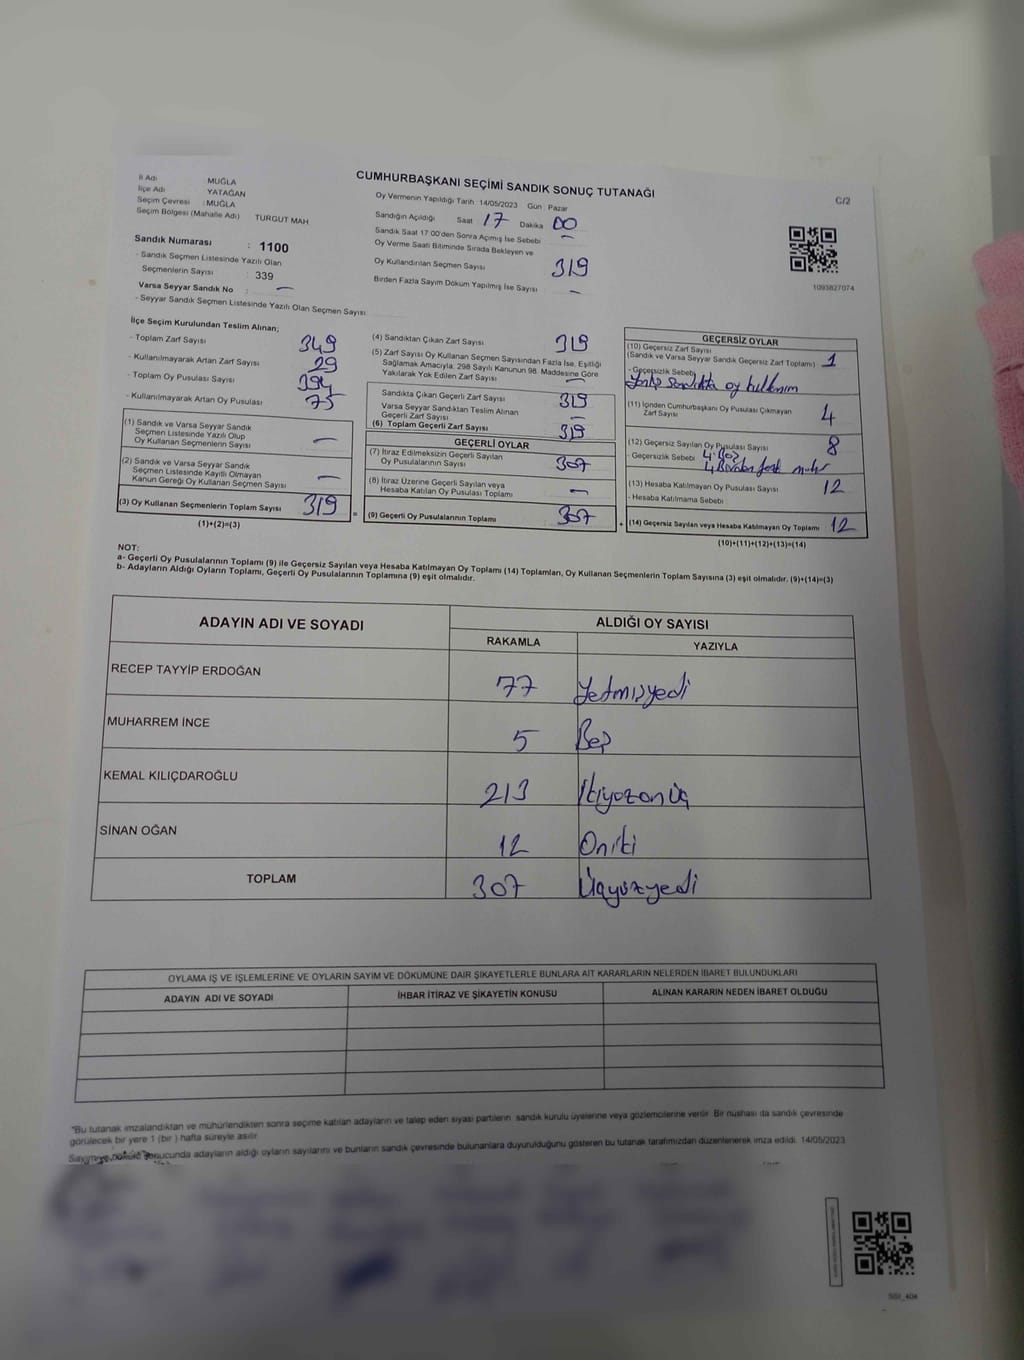 CUMHURBAŞKANI SEÇİMİ SANDIK SONUÇ TUTANAĞI
C/2
İl Adı : MUĞLA
İlçe Adı : YATAĞAN
Seçim Çevresi : MUĞLA
Seçim Bölgesi (Mahalle Adı) TURGUT MAH.
Sandık Numarası : 1100
- Sandık Seçmen Listesinde Yazılı Olan
Seçmenlerin Sayısı : 339
Varsa Seyyar Sandık No : —
- Seyyar Sandık Seçmen Listesinde Yazılı Olan Seçmen Sayısı
Oy Vermenin Yapıldığı Tarih : 14/05/2023 Gün : Pazar
Sandığın Açıldığı Saat 17 Dakika 00
Sandık Saat 17:00'den Sonra Açılmış İse Sebebi —
Oy Verme Saati Bitiminde Sırada Bekleyen ve
Oy Kullandırılan Seçmen Sayısı 319
Birden Fazla Sayım Döküm Yapılmış İse Sayısı —
1093827074
İlçe Seçim Kurulundan Teslim Alınan;
- Toplam Zarf Sayısı 349
- Kullanılmayarak Artan Zarf Sayısı 29
- Toplam Oy Pusulası Sayısı 394
- Kullanılmayarak Artan Oy Pusulası 75
(1) Sandık ve Varsa Seyyar Sandık
Seçmen Listesinde Yazılı Olup
Oy Kullanan Seçmenlerin Sayısı —
(2) Sandık ve Varsa Seyyar Sandık
Seçmen Listesinde Kayıtlı Olmayan
Kanun Gereği Oy Kullanan Seçmen Sayısı —
(3) Oy Kullanan Seçmenlerin Toplam Sayısı 319
(1)+(2)=(3)
(4) Sandıktan Çıkan Zarf Sayısı 319
(5) Zarf Sayısı Oy Kullanan Seçmen Sayısından Fazla İse, Eşitliği
Sağlamak Amacıyla, 298 Sayılı Kanunun 98. Maddesine Göre
Yakılarak Yok Edilen Zarf Sayısı —
Sandıkta Çıkan Geçerli Zarf Sayısı 319
Varsa Seyyar Sandıktan Teslim Alınan
Geçerli Zarf Sayısı —
(6) Toplam Geçerli Zarf Sayısı 319
GEÇERLİ OYLAR
(7) İtiraz Edilmeksizin Geçerli Sayılan
Oy Pusulalarının Sayısı 307
(8) İtiraz Üzerine Geçerli Sayılan veya
Hesaba Katılan Oy Pusulası Toplamı —
= (9) Geçerli Oy Pusulalarının Toplamı 307
GEÇERSİZ OYLAR
(10) Geçersiz Zarf Sayısı
(Sandık ve Varsa Seyyar Sandık Geçersiz Zarf Toplamı) 1
- Geçersizlik Sebebi
sandıkta oy kullanım
(11) İçinden Cumhurbaşkanı Oy Pusulası Çıkmayan
Zarf Sayısı 4
(12) Geçersiz Sayılan Oy Pusulası Sayısı 8
- Geçersizlik Sebebi 4 Boş
4 Birden fazla mühür
(13) Hesaba Katılmayan Oy Pusulası Sayısı 12
- Hesaba Katılmama Sebebi
+ (14) Geçersiz Sayılan veya Hesaba Katılmayan Oy Toplamı : 12
(10)+(11)+(12)+(13)=(14)
NOT:
a- Geçerli Oy Pusulalarının Toplamı (9) ile Geçersiz Sayılan veya Hesaba Katılmayan Oy Toplamı (14) Toplamları, Oy Kullanan Seçmenlerin Toplam Sayısına (3) eşit olmalıdır. (9)+(14)=(3)
b- Adayların Aldığı Oyların Toplamı, Geçerli Oy Pusulalarının Toplamına (9) eşit olmalıdır.
ADAYIN ADI VE SOYADI ALDIĞI OY SAYISI
RAKAMLA YAZIYLA
RECEP TAYYİP ERDOĞAN 77 Yetmişyedi
MUHARREM İNCE 5 Beş
KEMAL KILIÇDAROĞLU 213 İkiyüzonüç
SİNAN OĞAN 12 Oniki
TOPLAM 307 Üçyüzyedi
OYLAMA İŞ VE İŞLEMLERİNE VE OYLARIN SAYIM VE DÖKÜMÜNE DAİR ŞİKAYETLERLE BUNLARA AİT KARARLARIN NELERDEN İBARET BULUNDUKLARI
ADAYIN ADI VE SOYADI İHBAR İTİRAZ VE ŞİKAYETİN KONUSU ALINAN KARARIN NEDEN İBARET OLDUĞU
"Bu tutanak imzalandıktan ve mühürlendikten sonra seçime katılan adayların ve talep eden siyasi partilerin sandık kurulu üyelerine veya gözlemcilerine verilir. Bir nüshası da sandık çevresinde
görülecek bir yere 1 (bir ) hafta süreyle asılır.
Sayım ve döküm sonucunda adayların aldığı oyların sayılarını ve bunların sandık çevresinde bulunanlara duyurulduğunu gösteren bu tutanak tarafımızdan düzenlenerek imza edildi. 14/05/2023
SSI_404